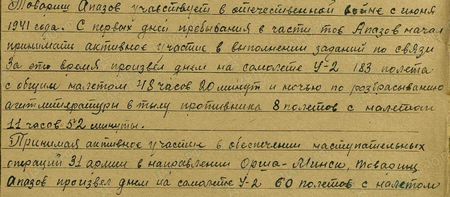 Товарищ Апазов участвует в отечественной войне с июня
1941 года. С первых дней пребывания в части тов Апазов начал
принимать активное участие в выполнении заданий по связи
За это время произвел днем на самолете У-2 183 полета
с общим налетом 48 часов 20 минут и ночью по разбрасыванию
агитлитературы в тылу противника 8 полетов с налетом
11 часов 52 минуты.
Принимая активное участие в обеспечении наступательных
операций 31 армии в направлении Орша-Минск, товарищ
Апазов произвел днем на самолете У-2 60 полетов с налетом